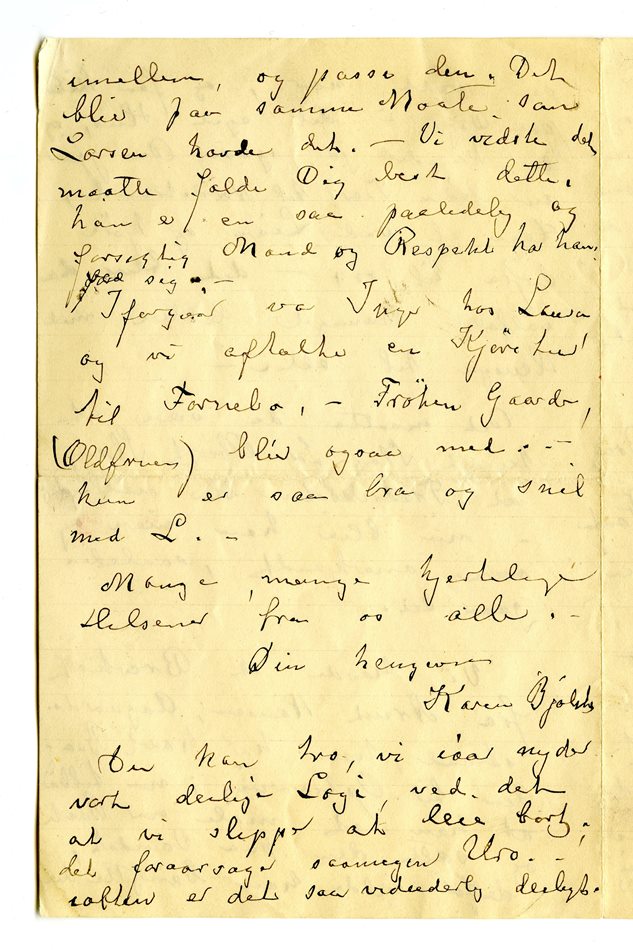 imellem, og passe den. Det
bliv paa samme Maate som
Larsen havde det. — Vi vidste det
maatte falde Dig best dette,
han er en saa paalidelig og
forsigtig Mand og Respekt ha han
med sig. —
Iforgaar var Inga hos Laura
og vi aftalte en Kjöretur
til Fornebo, — Fröken Gaarder,
(Oldfruen) bliv ogsaa med. —
hun er saa bra og snil
med L. —
Mange, mange hjertelige
Hilsener fra os alle. —
Din hengivne
Karen Bjölstad
Du kan tro, vi iaar nyder
vort deilige Logi, ved det
at vi slipper at leie bort,
det foraarsager saamegen Uro. —
iaften er det saa vidunderlig deiligt.